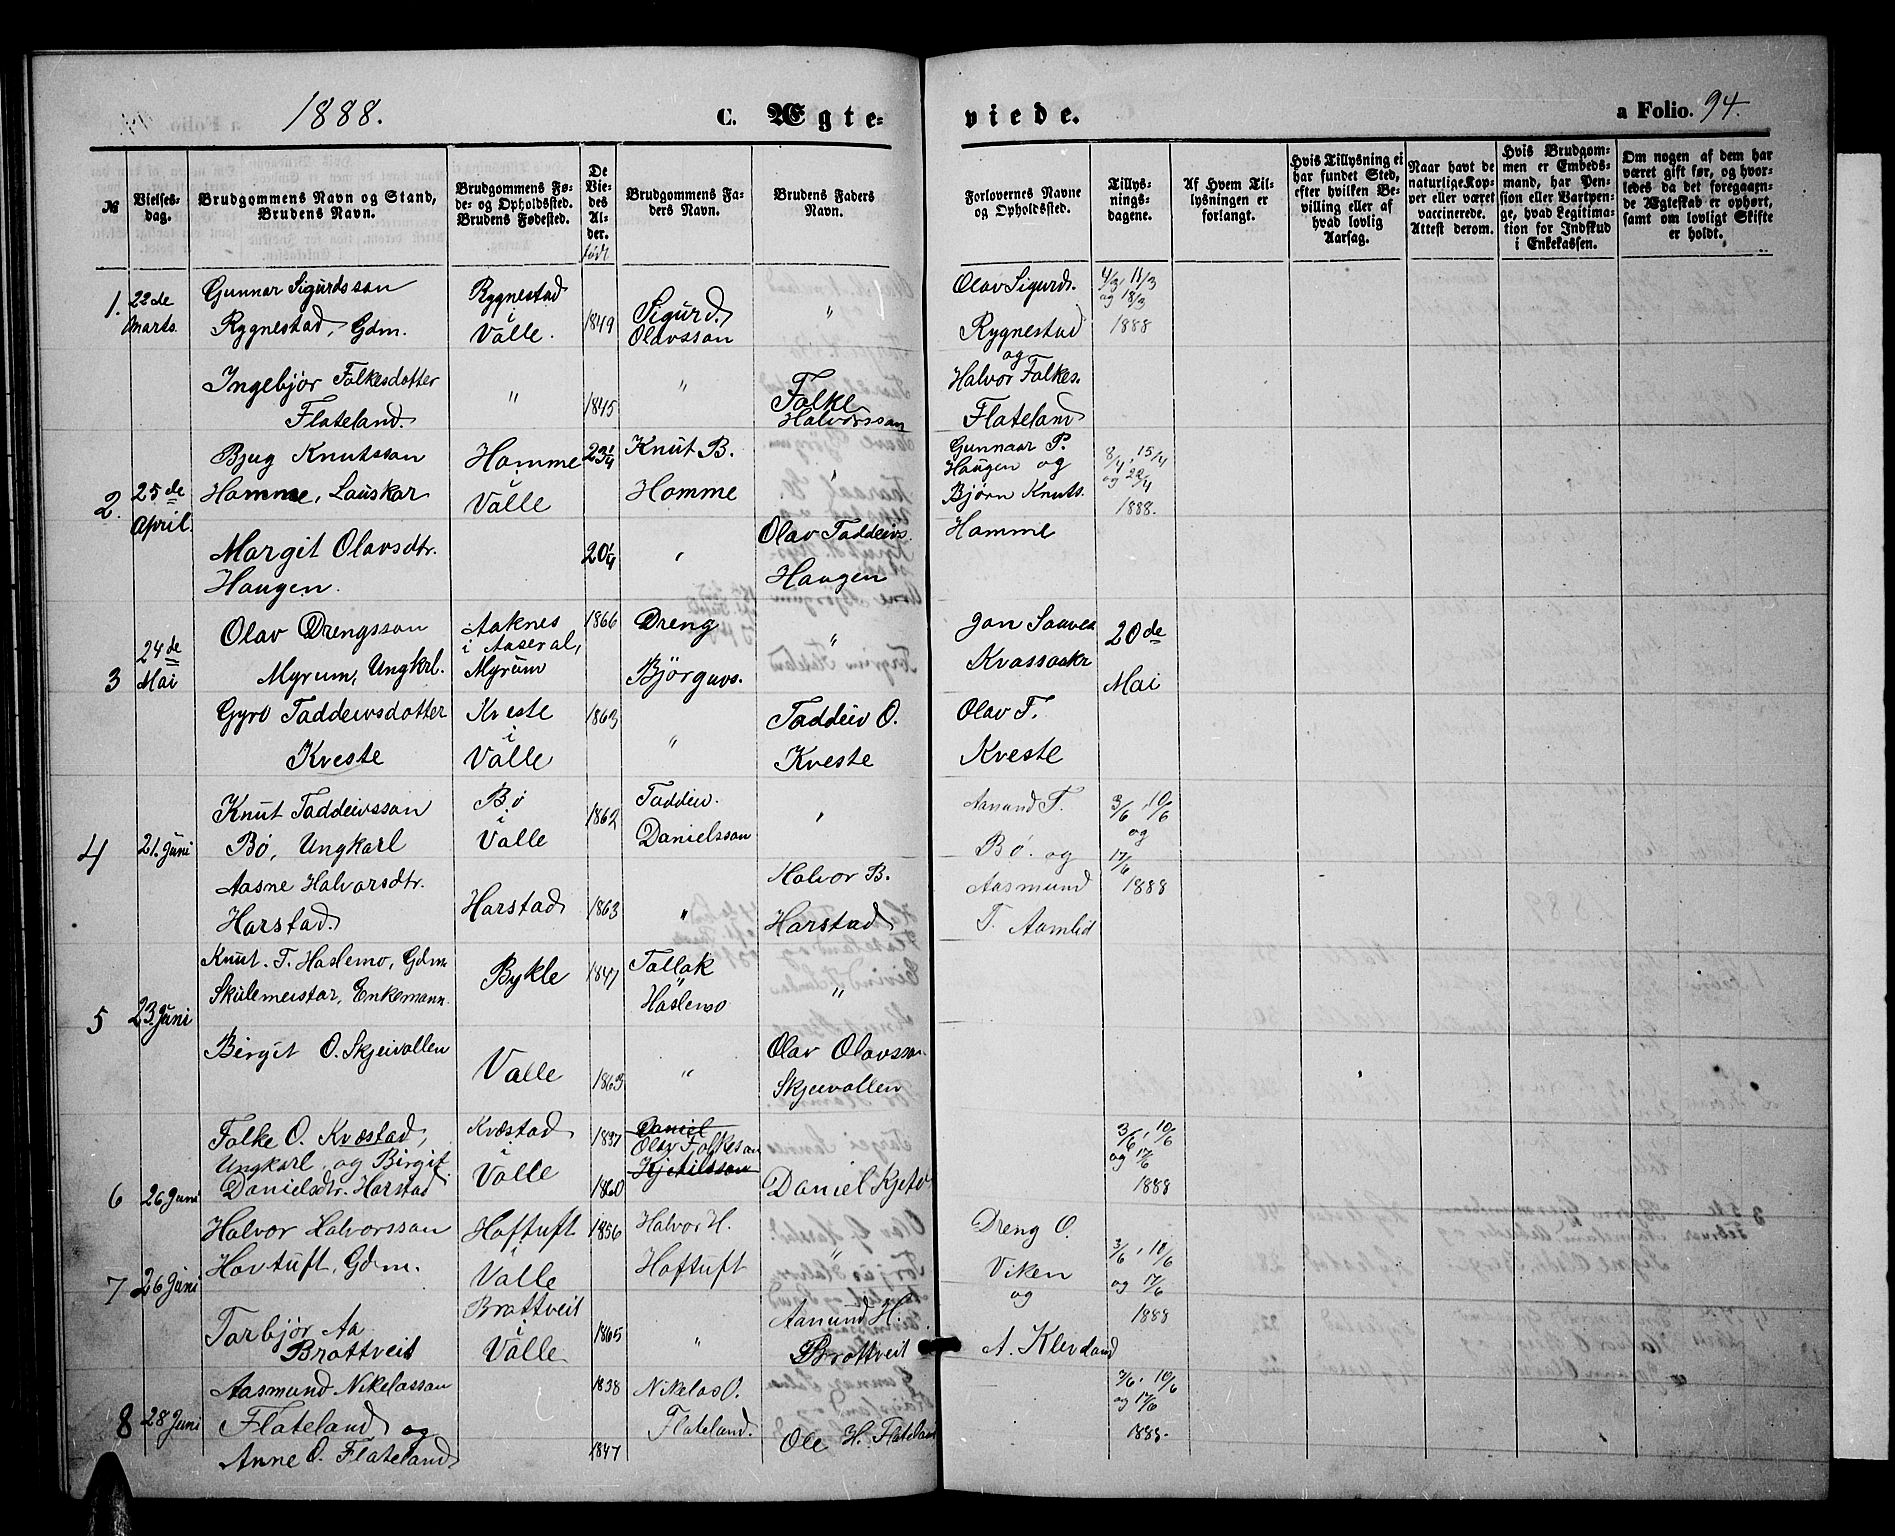 1888.
C. Ægte-
viede.
a Folio. 94.
№
Vielses-
dag.
Brudgommens Navn og Stand,
Brudens Navn.
Brudgommens Fø-
de- og Opholdssted.
Brudens Fødested.
De
Vie-
des
Al-
der.
født
Brudgommens Fa-
ders Navn.
Brudens Faders
Navn.
Forlovernes Navne
og Opholdssted.
Tillys-
nings-
dagene.
Af Hvem Til-
lysningen er
forlangt.
Hvis Tillysning ei
har fundet Sted,
efter hvilken Be-
villing eller af
hvad lovlig
Aarsag.
Naar havt de
naturlige Kop-
per eller været
vaccinerede.
Attest derom.
Hvis Brudgom-
men er Embeds-
mand, har Pen-
sion eller Vartpen-
ge, hvad Legitima-
tion for Indskud
i Enkekassen.
Om nogen af dem har
været gift før, og hvor-
ledes da det foregaaen-
de Ægteskab er ophørt,
samt om lovligt Skifte
er holdt.
1. 22de Marts.
Gunnar Sigurdsson
Rygnestad, Gdm.
Rygnestad
i
Valle.
1849
Sigurd
Olavsson
"
Olav Sigurds.
Rygnestad
og
4/3, 11/3
og 18/3
1888
Ingebjør Folkesdotter
Flateland.
"
1845
"
Folke
Halvorsson
Halvor Folkes.
Flateland
2. 25de April.
Bjug Knutsson
Homme, Lauskar
Homme
i
Valle
23 1/4
Knut B.
Homme
"
Gunnaar P.
Haugen og
Bjørn Knuts.
Homme
8/4, 15/4
og 22/4
1888.
Margit Olavsdtr.
Haugen.
20 1/4
"
Olav Taddeivs.
Haugen
3 24de Mai
Olav Drengsson
Myrum, Ungkrl.
Aaknes
i Aaseral,
Myrum
1866
Dreng
Bjørguvs.
"
Jon
Kvassaakr
20de
Mai
Gyro Taddeivsdotter
Kveste
Kveste
i
Valle
1863
"
Taddeiv O.
Kveste
Olav T.
Kveste
4 21. Juni
Knut Taddeivsson
Bø, Ungkarl
Bø
i
Valle
1862
Taddeiv
Danielsson
"
Aanund T.
Bø. og
Aasmund
T. Aamlid
3/6, 10/6
og
17/6
1888
Aasne Halvorsdtr.
Harstad
Harstad
1863
"
Halvor B.
Harstad
5 23. Juni
Knut. T. Haslemo, Gdm
Skulemeistar, Enkemann
Bykle
1847
Tallak
Haslemo
"
Birgit O. Skjeivollen
Valle
1863
"
Olav Olavsson
Skjeivollen
6 26 Juni
Folke O. Kvæstad,
Ungkarl, og Birgit
Danielsdtr. Harstad
Kvæstad
i
Valle
1837
1860
Daniel
Olav Folkeson
Kjetilsson
Daniel Kjetv
3/6, 10/6
og 17/6
1888
7 26 Juni
Halvor Halvorsson
Hovtuft, Gdm.
Hoftuft
i
Valle
1856
Halvor H.
Hoftuft
"
Dreng O.
Viken
og
A. Klevland
3/6, 10/6
og 17/6
1888
Torbjør Aa.
Brottveit
Brottveit
i
Valle
1865
"
Aanund H.
Brottveit
8 28 Juni
Aasmund Nikolasson
Flateland og
Anne O. Flateland
1838
1847
Nikolas O.
Flateland.
Ole H. Flateland
3/6, 10/6
og 17/6
1888.